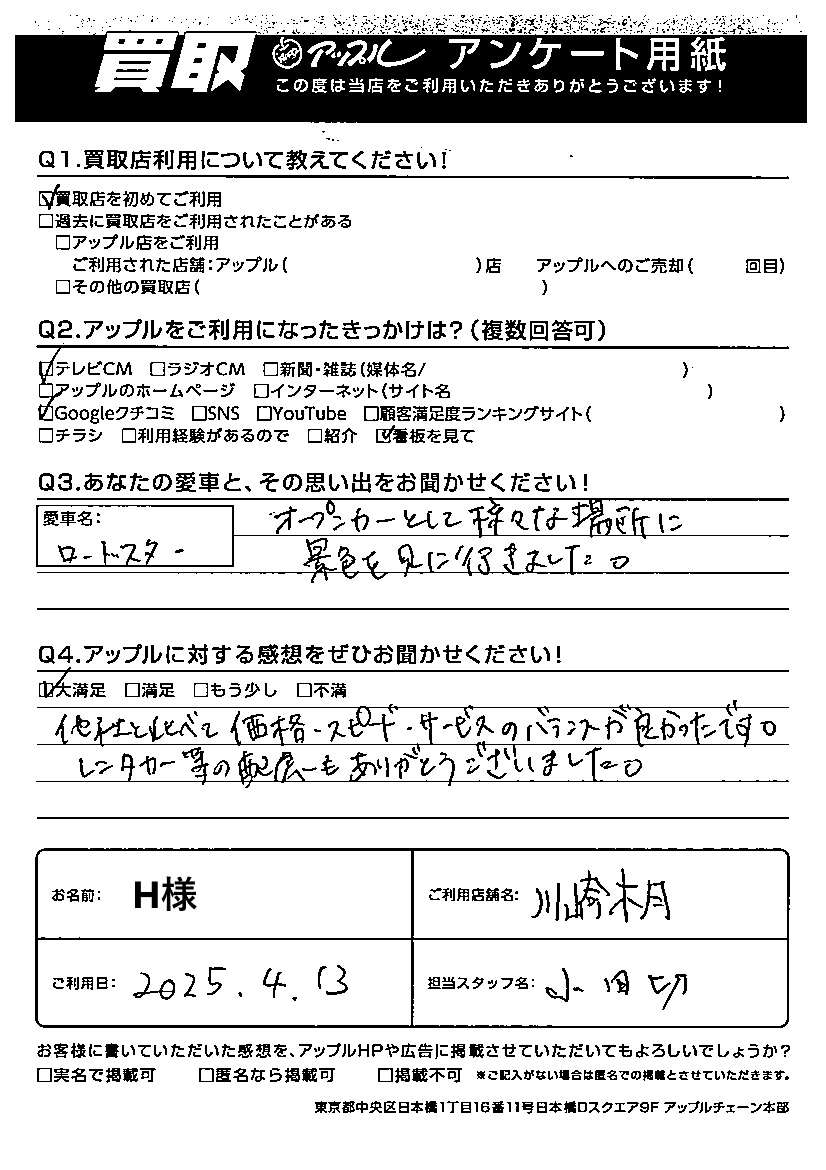 買取 アップル アンケート用紙
この度は当店をご利用いただきありがとうございます!
Q1.買取店利用について教えてください!
☑買取店を初めてご利用
□過去に買取店をご利用されたことがある
□アップル店をご利用
ご利用された店舗:アップル( )店 アップルへのご売却( 回目)
□その他の買取店( )
Q2.アップルをご利用になったきっかけは?(複数回答可)
☑テレビCM □ラジオCM □新聞・雑誌(媒体名/ )
□アップルのホームページ □インターネット(サイト名 )
☑Googleクチコミ □SNS □YouTube □顧客満足度ランキングサイト( )
□チラシ □利用経験があるので □紹介 ☑看板を見て
Q3.あなたの愛車と、その思い出をお聞かせください!
愛車名:
ロードスター
オープンカーとして様々な場所に
景色を見に行きました。
Q4.アップルに対する感想をぜひお聞かせください!
☑大満足 □満足 □もう少し □不満
他社と比べて価格・スピード・サービスのバランスが良かったです。
レンタカー等の配慮もありがとうございました。
お名前: H様
ご利用店舗名: 川崎木月
ご利用日: 2025.4.13
担当スタッフ名: 小田切
お客様に書いていただいた感想を、アップルHPや広告に掲載させていただいてもよろしいでしょうか?
□実名で掲載可 □匿名なら掲載可 □掲載不可 ※ご記入がない場合は匿名での掲載とさせていただきます。
東京都中央区日本橋1丁目16番11号日本橋Dスクエア9F アップルチェーン本部